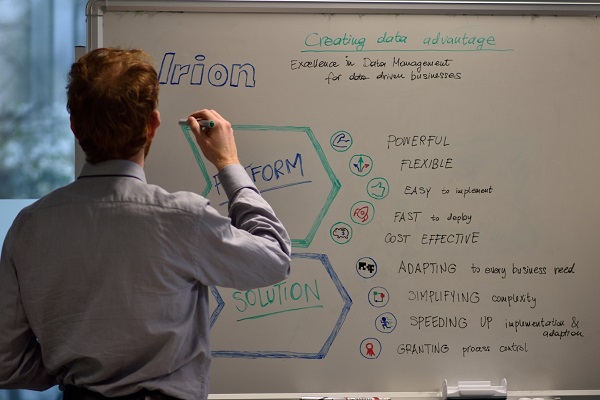 Creating data advantage
Irion
Excellence in Data Management
for data driven businesses
PLATFORM
POWERFUL
FLEXIBLE
EASY to implement
FAST to deploy
COST EFFECTIVE
SOLUTION
ADAPTING to every business need
SIMPLIFYING complexity
SPEEDING UP implementation &
adaption
GRANTING process control